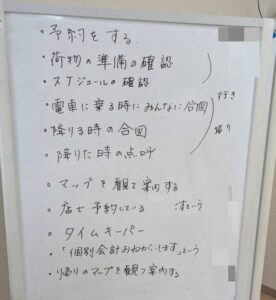 ・予約をする
・荷物の準備の確認
・スケジュールの確認
・電車に乗る時にみんなに合図
行き
・降りる時の合図
帰り
・降りた時の点呼
・マップを観て案内する
・店で予約している ですという
・タイムキーパー
・「個別会計おねがいします」という
・帰りのマップを観て案内する